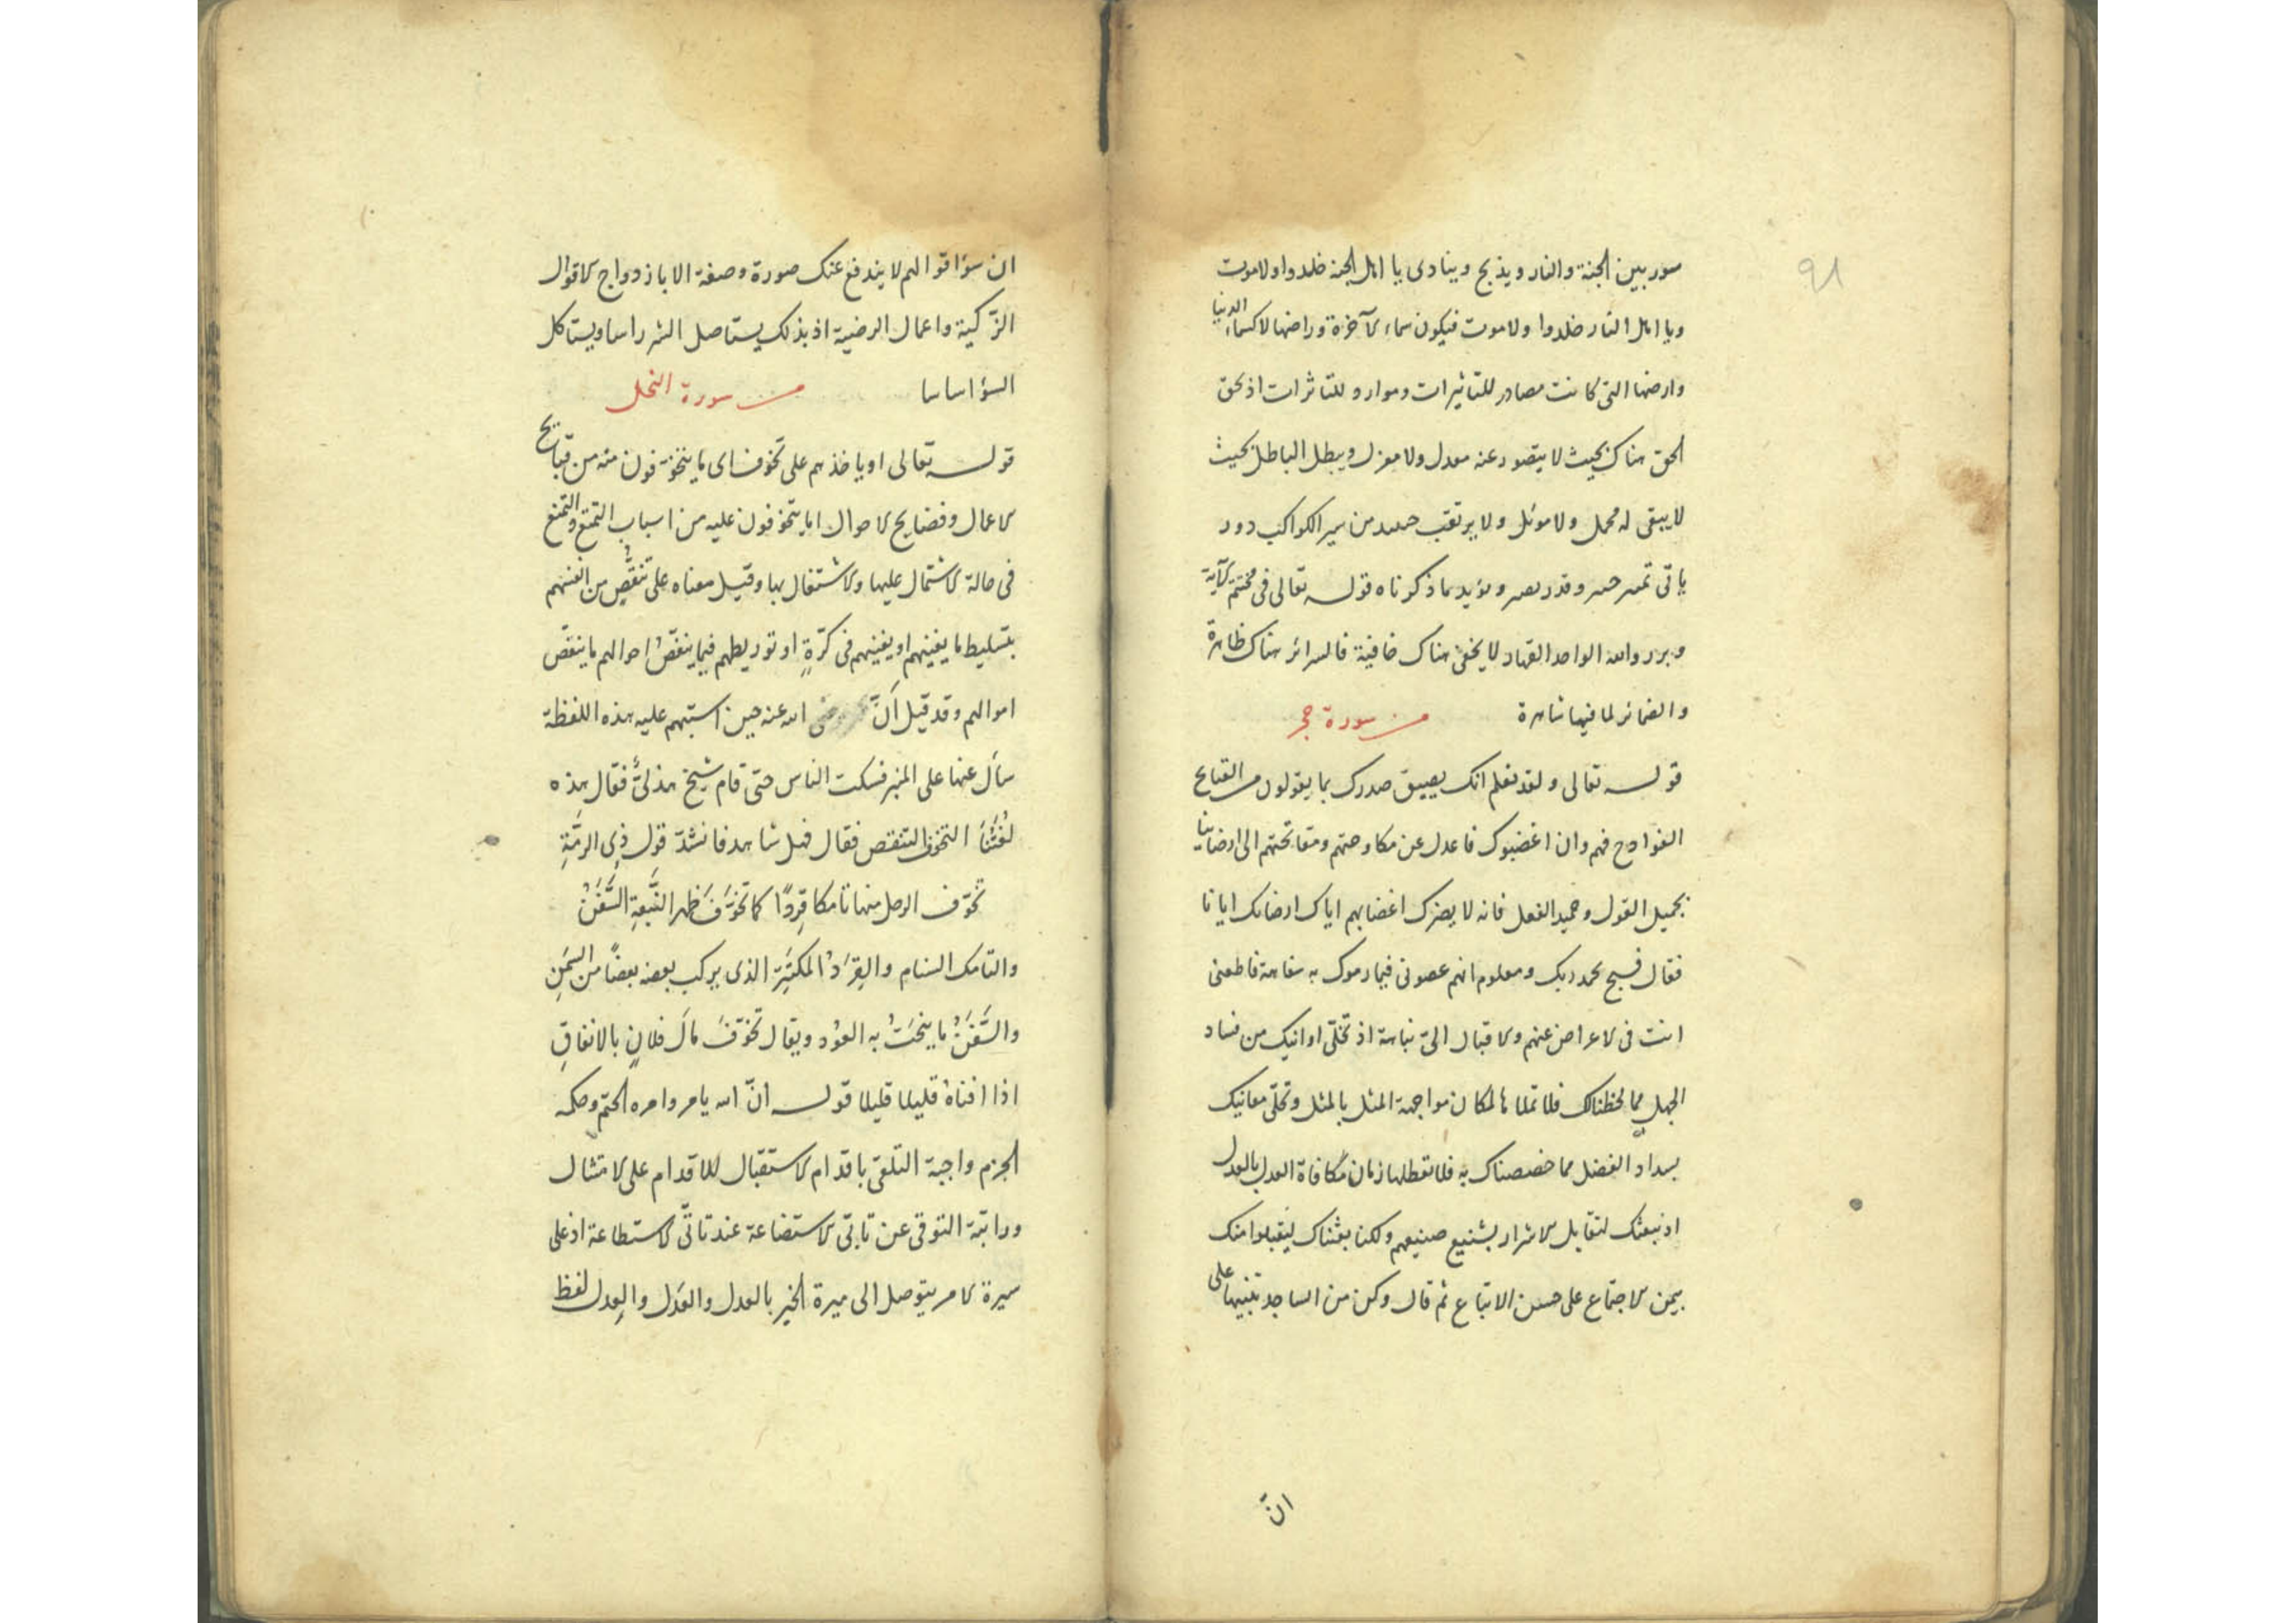 ٩٨
سور بين الجنة والنار ويذبح وينادى يا اهل الجنة خلدوا ولا موت
ويا اهل النار خلدوا ولا موت فيكون سماء الآخرة وراضها لا كسماء الدنيا
وارضها التى كانت مصادر للتاثيرات وموارد للتاثرات اذ يحق
الحق هناك بحيث لا يتصور عنه معدل ولا معزل ويبطل الباطل بحيث
لا يبقى له محمل ولا موئل ولا يرتقب من سير الكواكب دور
ياتى وقدر ويؤيد ما ذكرناه قوله تعالى فى مختتم الآية
وبرزوا لله الواحد القهار لا يخفى هناك خافية فالسرائر هناك ظاهرة
والضمائر لما فيها شاهرة من سورة حجر
قوله تعالى ولقد نعلم انك يضيق صدرك بما يقولون من القبايح
الفوادح فهم وان اغضبوك فاعدل عن مكاوحتهم ومقابحتهم الى ارضاينا
بجميل القول وحميد الفعل فانه لا يضرك اغضابهم اياك ارضائك ايانا
فقال فسبح بحمد ربك ومعلوم انهم عصونى فيما رموك به سفاهة فاطعنى
انت فى الاعراض عنهم والاقبال الىّ نباهة اذ تخلّى اوانيك من فساد
الجهل مما لحظناك فلا تملاها لمكان مواجهة المثل بالمثل وتحلّى معانيك
بسداد الفضل مما خصصناك به فلا تعطلها زمان مكافاة العدل بالعدل
اذ نبعثك لتقابل الاشرار بشنيع صنيعهم ولكنا بعثناك ليقبلوا منك
بيمن الاجتماع على حسن الاتباع ثم قال وكن من الساجد تنبيها على
انّ
ان سوٴ اقوالهم لا يندفع عنك صورة وصفة الا بازدواج الاقوال
الزّكية واعمال الرضية اذ بذلك يستاصل الشر راسا ويستاكل
السوٴ اساسا من سورة النحل
قوله تعالى او ياخذهم على تخوف اى ما يتخوّفون منه من قبايح
الاعمال وفضايح الاحوال او ما يتخوفون عليه من اسباب التمتع والتمنع
فى حالة الاشتمال عليها والاشتغال بها وقيل معناه على تنقّصٍ من انفسهم
بتسليط ما يفنيهم او يغنيهم فى كرّةٍ او توريطهم فيما ينغّصُ احوالهم ما ينقّص
اموالهم وقد قيل اَنّ الله عنه حين استبهم عليه هذه اللفظة
سأل عنها على المنبر فسكت الناس حتى قام شيخ هذلىٌّ فقال هذه
لُغَتُنا التخوف التنقص فقال فهل شاهد فانشد قول ذِى الرمّةِ
تخوّف الرحل منها تامكا قرِدًا كما تخوّفَ ظهر النّبعةِ السَّفَنُ
والتامك السنام والقِرَدُ المكتنِز الذى يركب بعضه بعضًا من السِمَنِ
والسَّفَنُ ما ينحَتُ به العوٗد ويقال تخوّفَ مالَ فلانٍ بالانفاقِ
اذا افناهُ قليلا قليلا قوله انّ الله يامر وامره الحتم وحكمه
الجزم واجبة التلقى باقدام الاستقبال للاقدام على الامتثال
وراتبة التوقى عن تاتّى الاستضاعة عند تاتّى الاستطاعة اذ على
سيرة الامر يتوصل الى ميرة الخير بالعدل والعَدل والعِدل لفظ